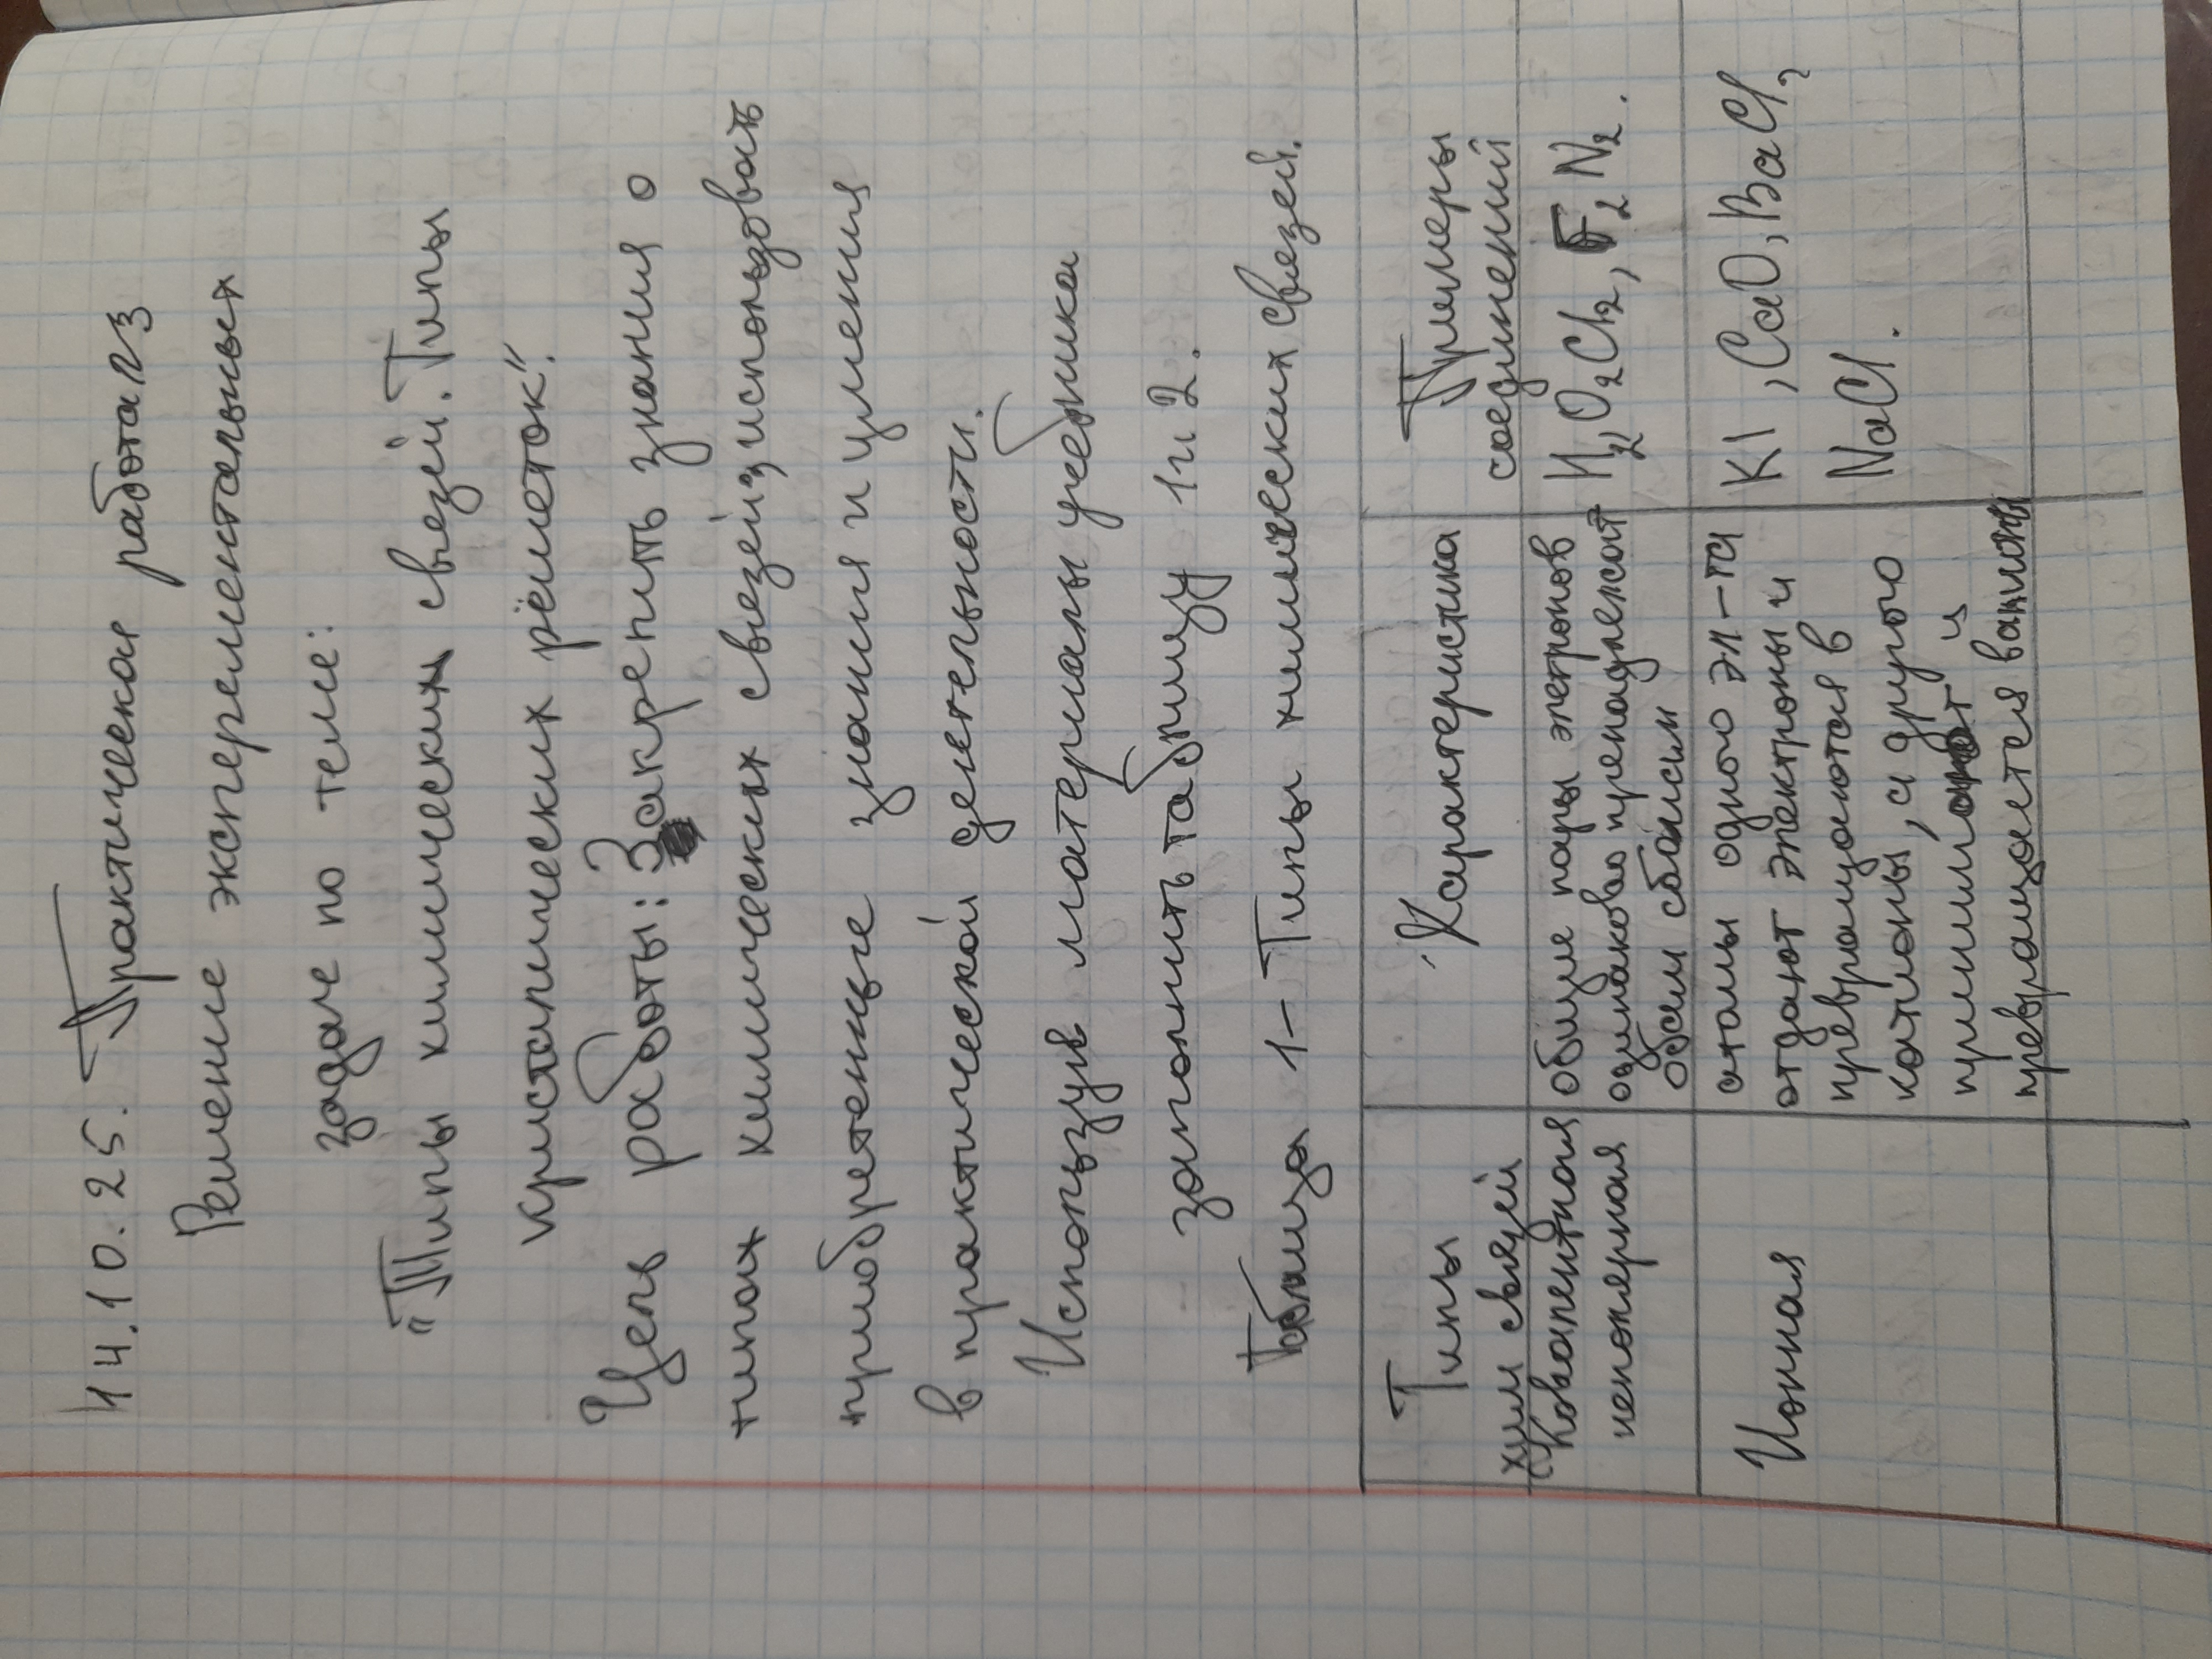 14.10.25. Практическая работа №3
Решение эксперементальных
задач по теме:
"Типы химических связей. Типы
кристаллических решеток".
Цель работы: Закрепить знания о
типах химических связей, использовать
приобретенные знания и умения
в практической деятельности.
Используя материалы учебника
заполнить таблицу 1 и 2.
Таблица 1 - Типы химических связей.
Типы
хим связей
Характеристика
Примеры
соединений
Ковалентная
неполярная
общие пары элетронов
одинаково пренадлежат
обеим сбоисим
H2, O2 Cl2, F2 N2.
Ионная
атомы одного эл-та
отдают электроны и
превращаются в
катионы, а другого
принимают и
превращается в анионы
KI, CaO, BaCl2
NaCl.